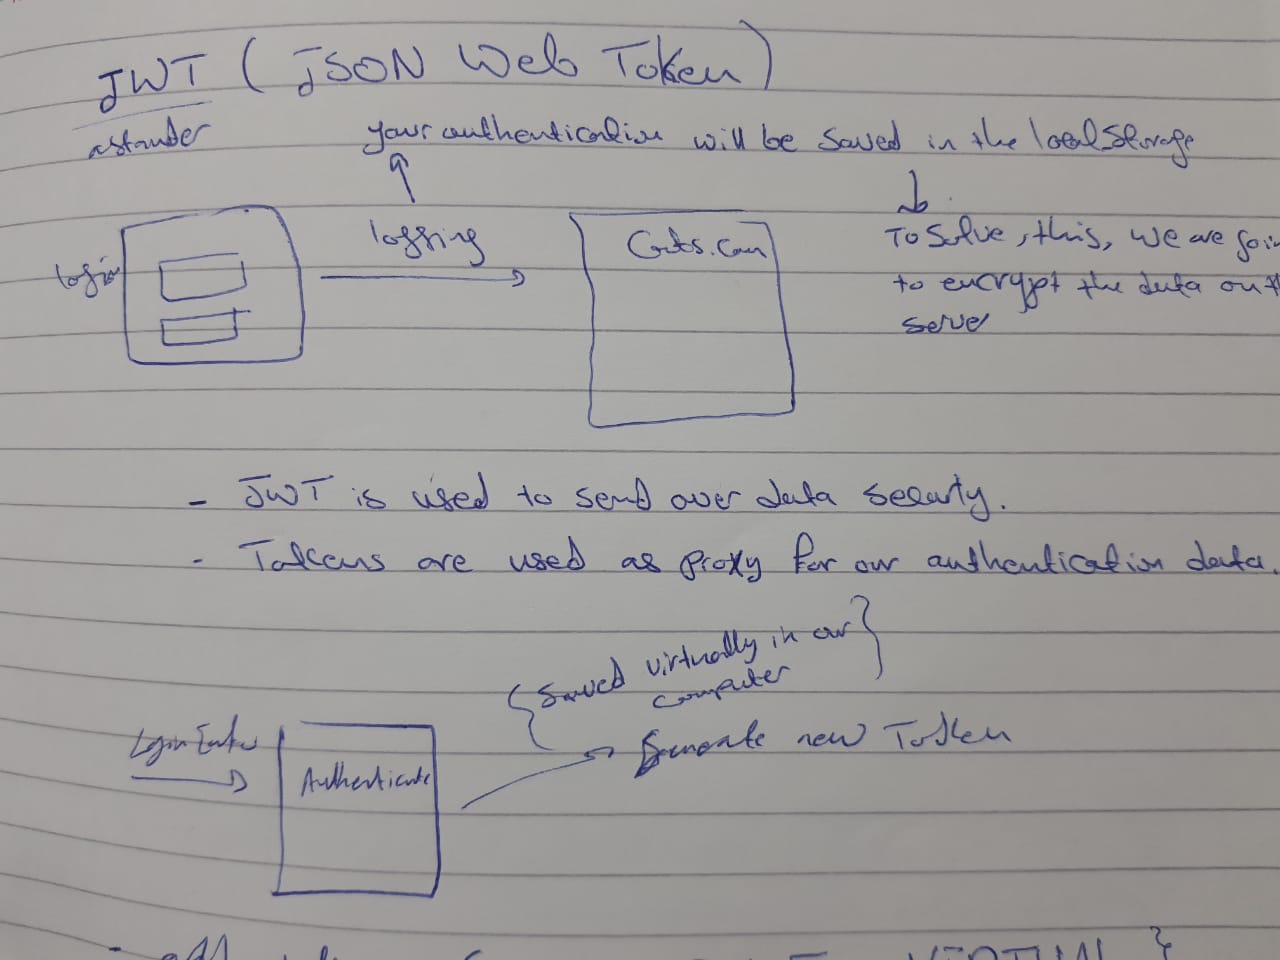 JWT ( JSON Web Token )
a stander
your authentication will be saved in the local storage
login
logging
Cats.com
To solve, this, we are goin
to encrypt the data on th
server
- JWT is used to send over data security.
- Tokens are used as proxy for our authentication data.
{ saved virtually in our }
computer
Login
Authenticate
Generate new Token